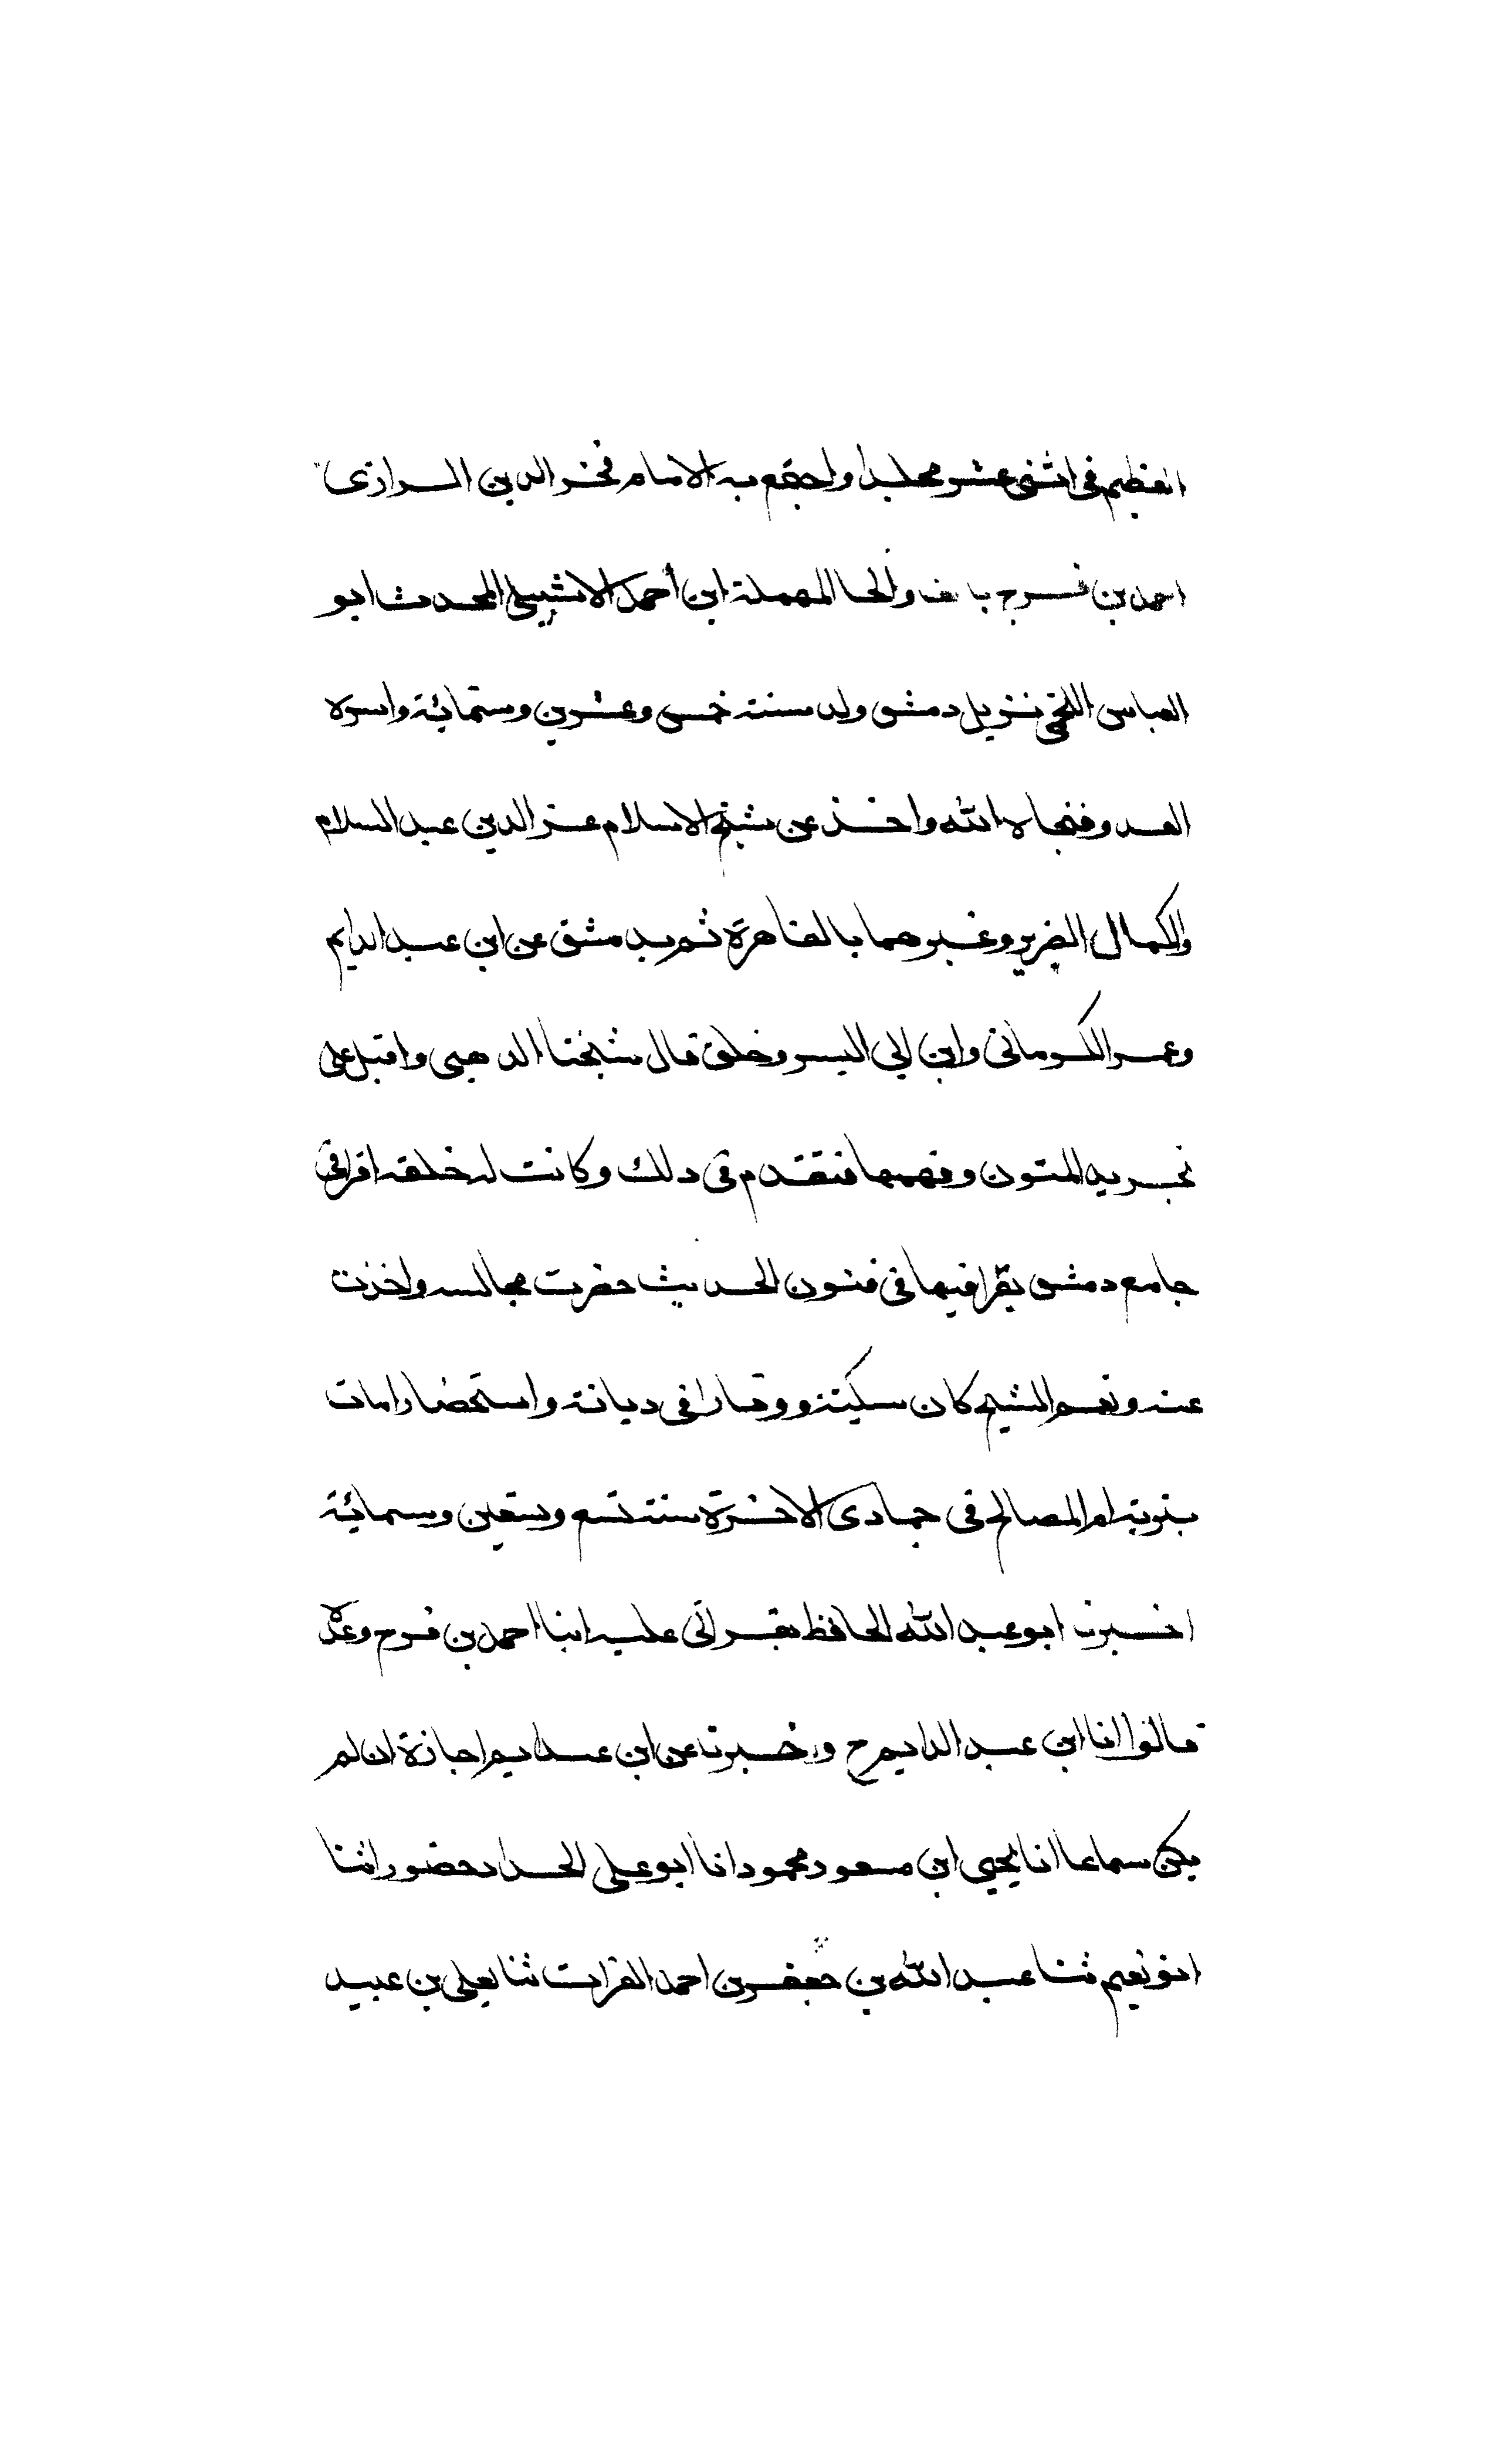 العظيم في اثنى عشر مجلدا واجتمع به الامام فخر الدين الرازى
احمد بن فرح بالفا والحا المهملة ابن أحمد الاشبيلي المحدث ابو
العباس اللخمي نزيل دمشق ولد سنة خمس وعشرين وستمائة واسره
العدو ونجاه الله واخذ عن شيخ الاسلام عز الدين عبد السلام
والكمال الضرير وغيرهما بالقاهرة ثم بدمشق عن ابن عبد الدايم
وعمر الكرمانى وابن ابي اليسر وخلق قال شيخنا الذهبى واقبل على
تجريد المتون وفهمها فتقدم في ذلك وكانت له حلقه اقرا في
جامع دمشق يقرا فيها في فنون الحديث حضرت مجالسه واخذت
عنه ونعم الشيخ كان سكينة ووقارا في ديانة واستحضارا مات
بتربة ام الصالح في جمادى الاخرة سنة تسع وتسعين وستمائة
اخبرنا ابو عبد الله الحافظ بقراتى عليه انبا احمد بن فرح وعدة
قالوا انا ابن عبد الدايم ح واخبرنا عن ابن عبد الدايم اجازة ان لم
يكن سماعا انا يحيى ابن مسعود محمود انا ابو على الحداد حضورا ثنا
ابو نعيم ثنا عبد الله بن جعفر بن احمد الفرات ثنا يعلى بن عبيد